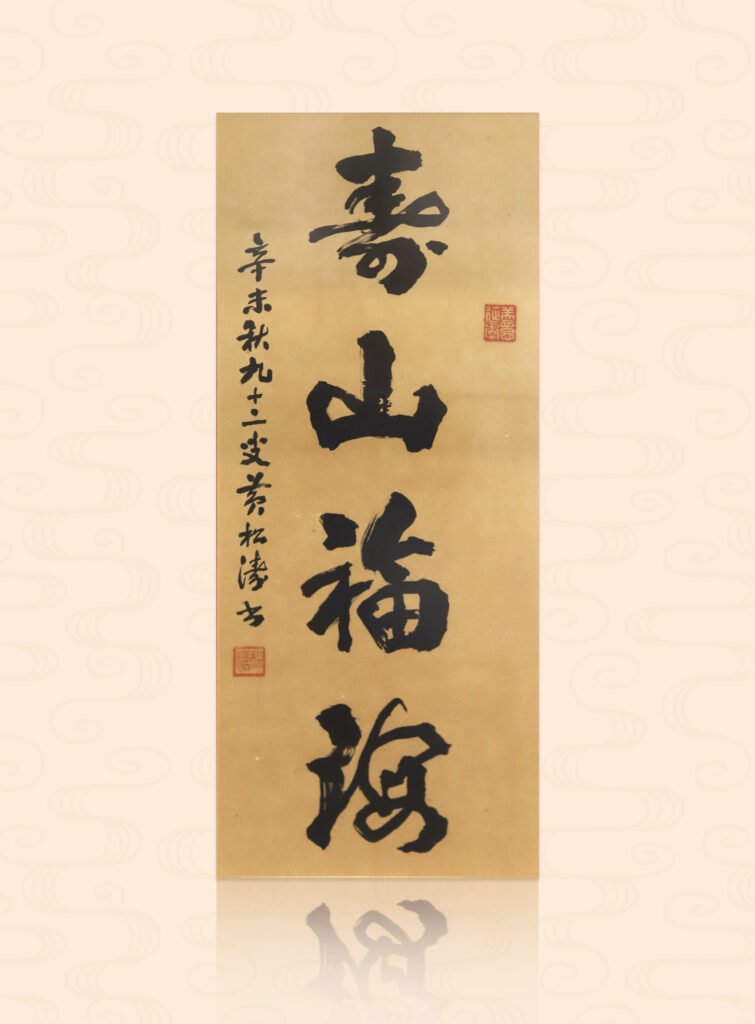 壽山福海
辛未秋九十二叟黃松濤書